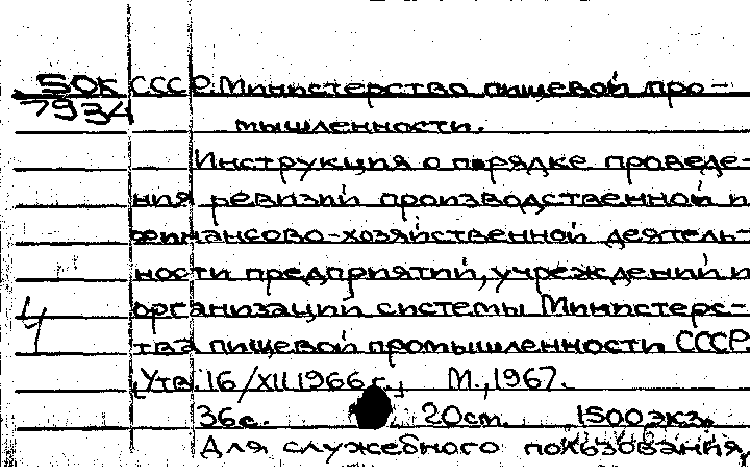 50К СССР. Министерство пищевой про-
7934
мышленности.
Инструкция о порядке проведе-
ния ревизий производственной и
финансово-хозяйственной деятель-
ности предприятий, учреждений и
организаций системы Министерс-
4 тва пищевой промышленности СССР.
[Утв. 16/XII 1966 г.] М., 1967.
36с. 20см. 1500экз.
Для служебного пользования